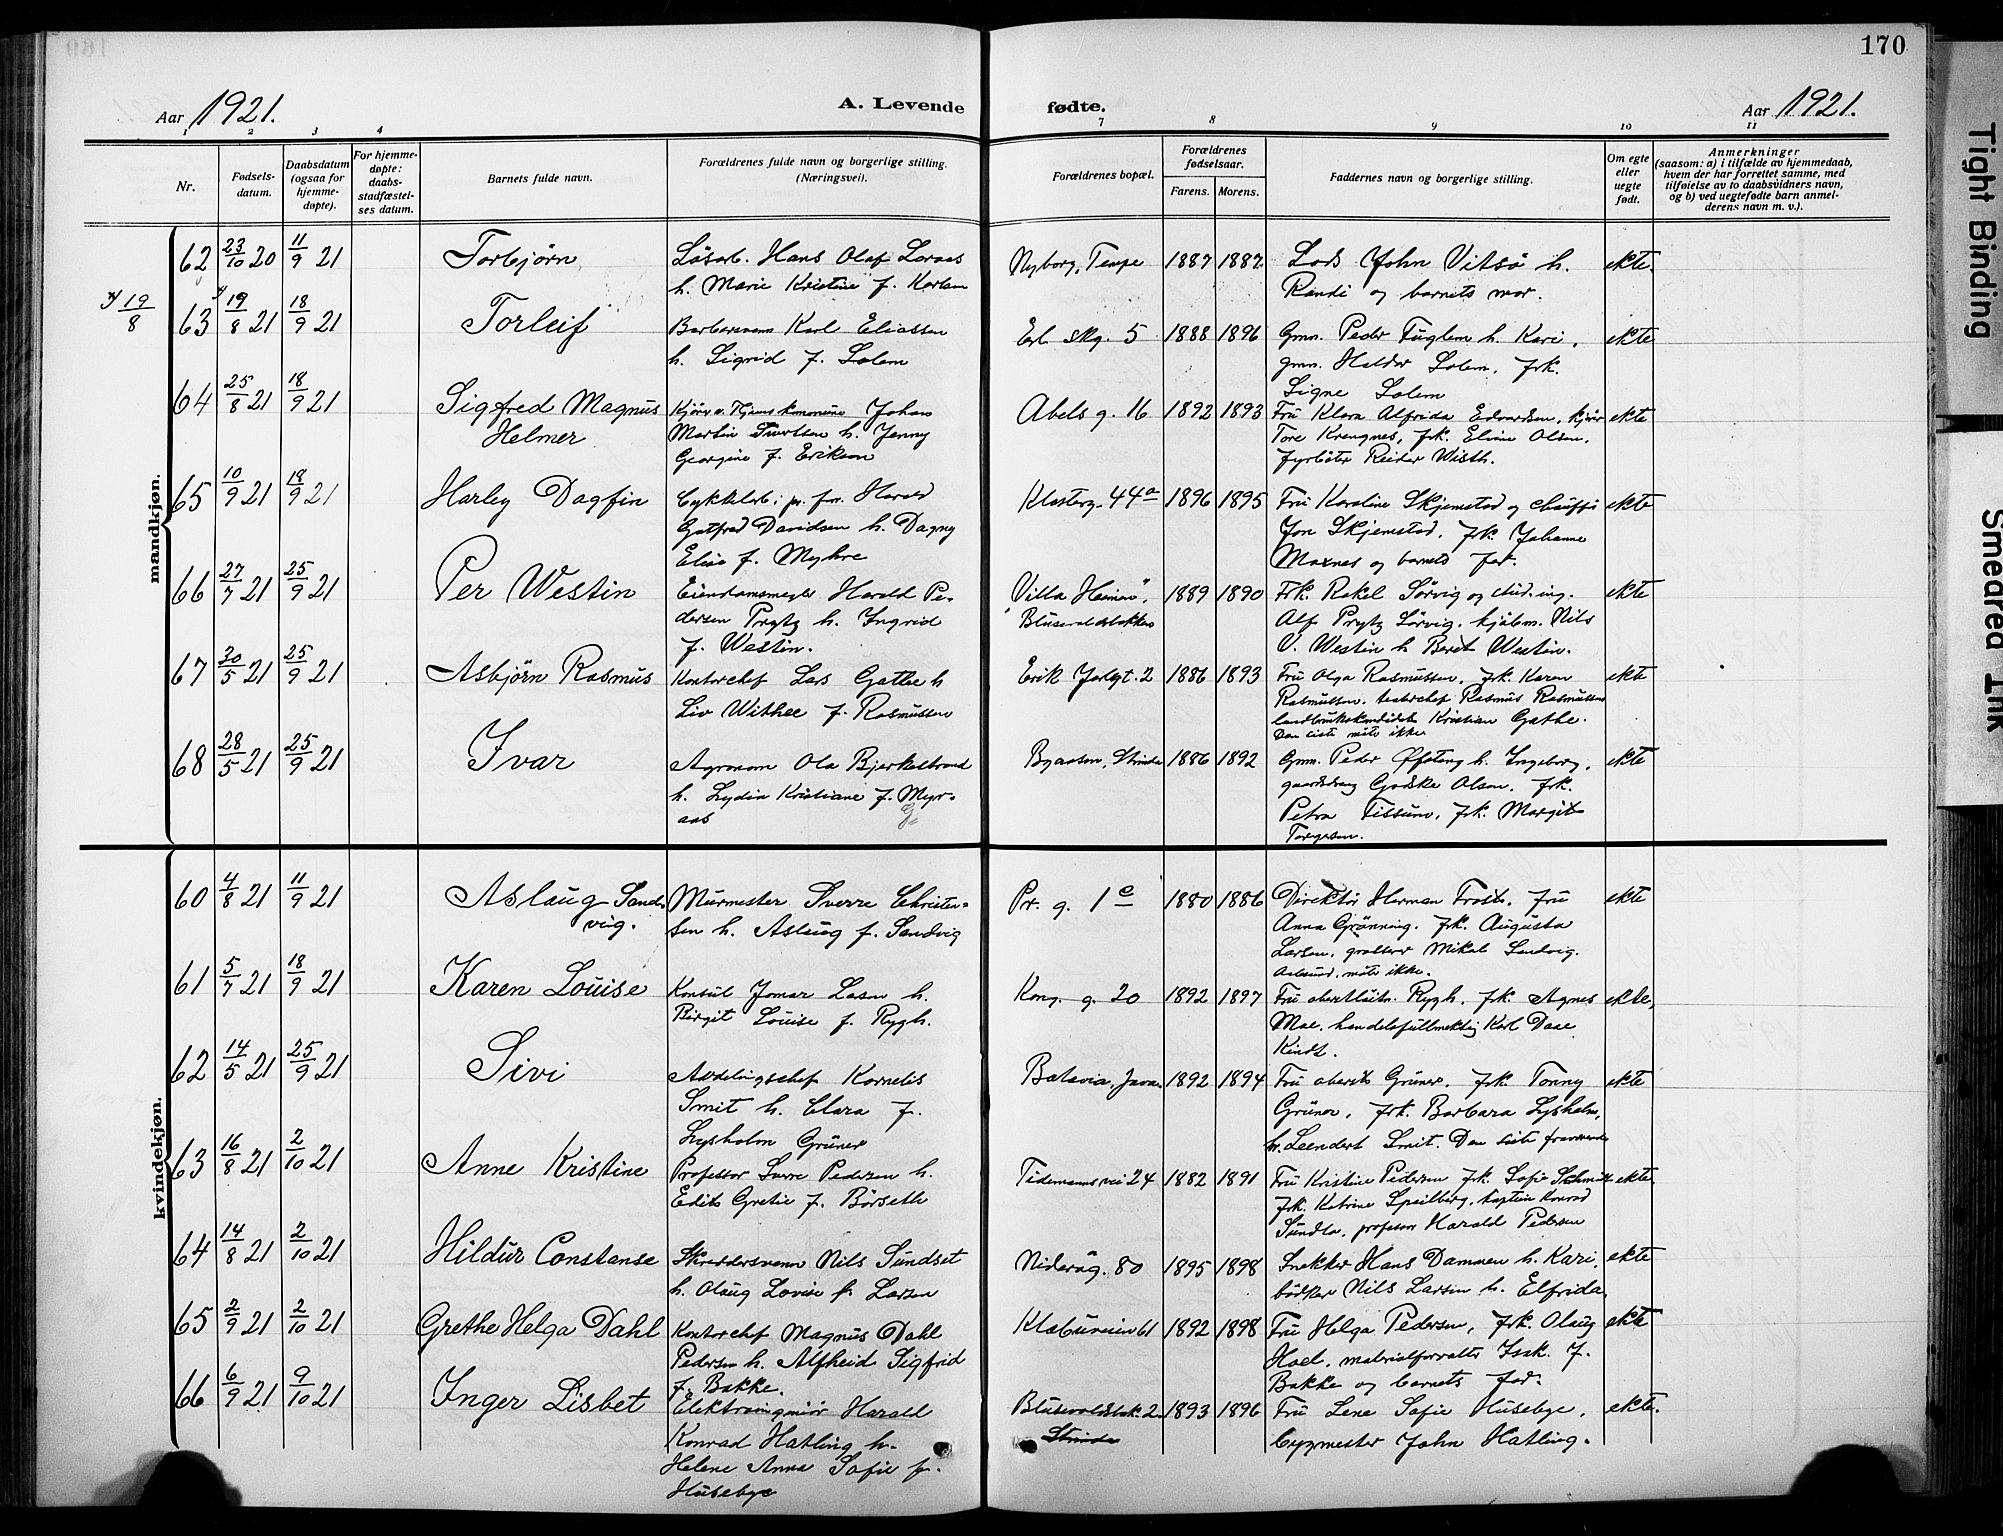 170
Aar 1921.
A. Levende fødte.
Aar 1921.
1 2 3 4 7 8 9 10 11
Nr.
Fødselsdatum.
Daabsdatum (ogsaa for hjemmedøpte).
For hjemmedøpte: daabsstadfæstelses datum.
Barnets fulde navn.
Forældrenes fulde navn og borgerlige stilling. (Næringsvei).
Forældrenes bopæl.
Forældrenes fødselsaar.
Farens. Morens.
Faddernes navn og borgerlige stilling.
Om egte eller uegte født.
Anmerkninger
(saasom: a) i tilfælde av hjemmedaab,
hvem der har forrettet samme, med
tilføielse av to daabsvidners navn,
og b) ved uegtefødte barn anmelderens navn m. v.).
mandkjøn.
62 23/10 20 11/9 21 Torbjørn Løsarb. Hans Olaf Nyborg, Tempe 1887 1887 Lods John Vitsø h. ekte.
h. Marie Kristine f. Randi og barnets mor.
19/8 63 19/8 21 18/9 21 Torleif Barbersvenn Karl Eliassen Erl. Skg. 5 1888 1896 Gmn. Peder Fuglem h. Kari, ekte
h. Sigrid f. Solem gmn. Haldor Solem, frk.
Signe Solem
64 25/8 21 18/9 21 Sigfred Magnus Johan Abels g. 16 1892 1893 Fru Klara Alfrida Edvardsen, ekte
Helmer Martin h. Jenny Tore Krengnes, frk. Elvine Olsen,
Georgine f. Erikson fyrbøter Reidar Wisth.
65 10/9 21 18/9 21 Harley Dagfin Harald Klosterg. 44a 1896 1895 Fru Karoline Skjemstad og ekte
Gotfred Davidsen h. Dagny Jon Skjemstad, frk. Johanne
Elise f. Myhre Moxnes og barnets far.
66 27/7 21 25/9 21 Per Westin Eiendomsmegler Harald Pe- Villa 1889 1890 Frk. Rakel Sørvig og stud. ing. ekte
dersen Prytz h. Ingrid Blusevoldsbakken Alf Prytz Sørvig, kjøbm. Nils
f. Westin. O. Westin h Berit Westin.
67 30/5 21 25/9 21 Asbjørn Rasmus Kontorchef Lars Gathe h Erik Jarlsgt. 2 1886 1893 Fru Olga Rasmussen, frk. Karen ekte
Liv Withee f. Rasmussen Rasmussen, Rasmus Rasmussen
landbrukskandidat Kristian Gathe.
Den siste møtte ikke
68 28/5 21 25/9 21 Ivar Agronom Ola Bjerkestrand Byaasen, Strinda 1886 1892 Gmn. Peder Øfsteng h. Ingeborg, ekte
h. Lydia Kristiane f. Myr- Godske Olsen, frk.
aas Petra Tissum, frk. Margit
Torgersen.
kvindekjøn.
60 4/8 21 11/9 21 Aslaug Sand- Murmester Sverre Christen- Pr. g. 1c 1880 1886 Direktør Herman Frost, fru ekte
vig. sen h. Aslaug f. Sandvig Anna Grønning, frk. Augusta
Larsen, Mikal Sandvig,
Aalesund, møtte ikke.
61 5/7 21 18/9 21 Karen Louise Konsul Jomar h. Kong. g. 20 1892 1897 Fru Rygh, frk. Agnes ekte,
Birgit Louise f. Rygh. Moe, handelsfuldmektig Karl Daae
Kindt.
62 14/5 21 25/9 21 Sivi Avdelingschef Kornelis Batavia, Java 1892 1894 Fru oberst Grüner, frk. Tonny ekte
Smit h. Clara f. Grüner, frk. Barbara Lysholm,
Lysholm Grüner hr. Leendert Smit. Den siste fraværende
63 16/8 21 2/10 21 Anne Kristine Professor Sverre Pedersen h. Tidemannsvei 24 1882 1891 Fru Kristine Pedersen frk. Sofie Schmidt ekte
Edith Gretie f. Børseth frk. Katrine Speilberg, kaptein Konrad
Sundlo, professor Harald Pedersen
64 14/8 21 2/10 21 Hildur Constanse Skreddersvenn Nils Sundset Niderøg. 80 1895 1898 Snekker Hans Dammen h. Kari, ekte
h. Olaug Lovise f. Larsen bødker Nils Larsen h. Elfrida,
65 2/9 21 2/10 21 Grethe Helga Dahl Kontorchef Magnus Dahl Klæbuveien 61 1892 1898 Fru Helga Pedersen, frk. Olaug ekte
Pedersen h. Alfheid Sigfrid Hoel, materialforvalter Isak J.
f. Bakke. Bakke og barnets far.
66 6/9 21 9/10 21 Inger Lisbet Elektroingeniør Harald Blusevoldsbak. 2 1893 1896 Fru Lene Sofie Husebye, ekte.
Konrad Hatling h. Strinda bygmester John Hatling.
Helene Anna Sofie f.
Husebye
Tight Binding
Smeared Ink